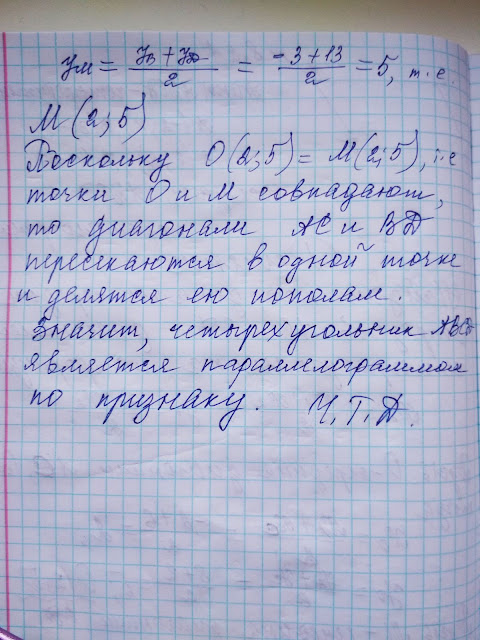 yм = (yв + yД)/2 = (-3 + 13)/2 = 5, т.е.
М(2;5)
Поскольку О(2;5) = М(2;5), т.е
точки О и М совпадают,
то диагонали АС и ВД
пересекаются в одной точке
и делятся ею пополам.
Значит, четырехугольник АВСД
является параллелограммом
по признаку. Ч.Т.Д.